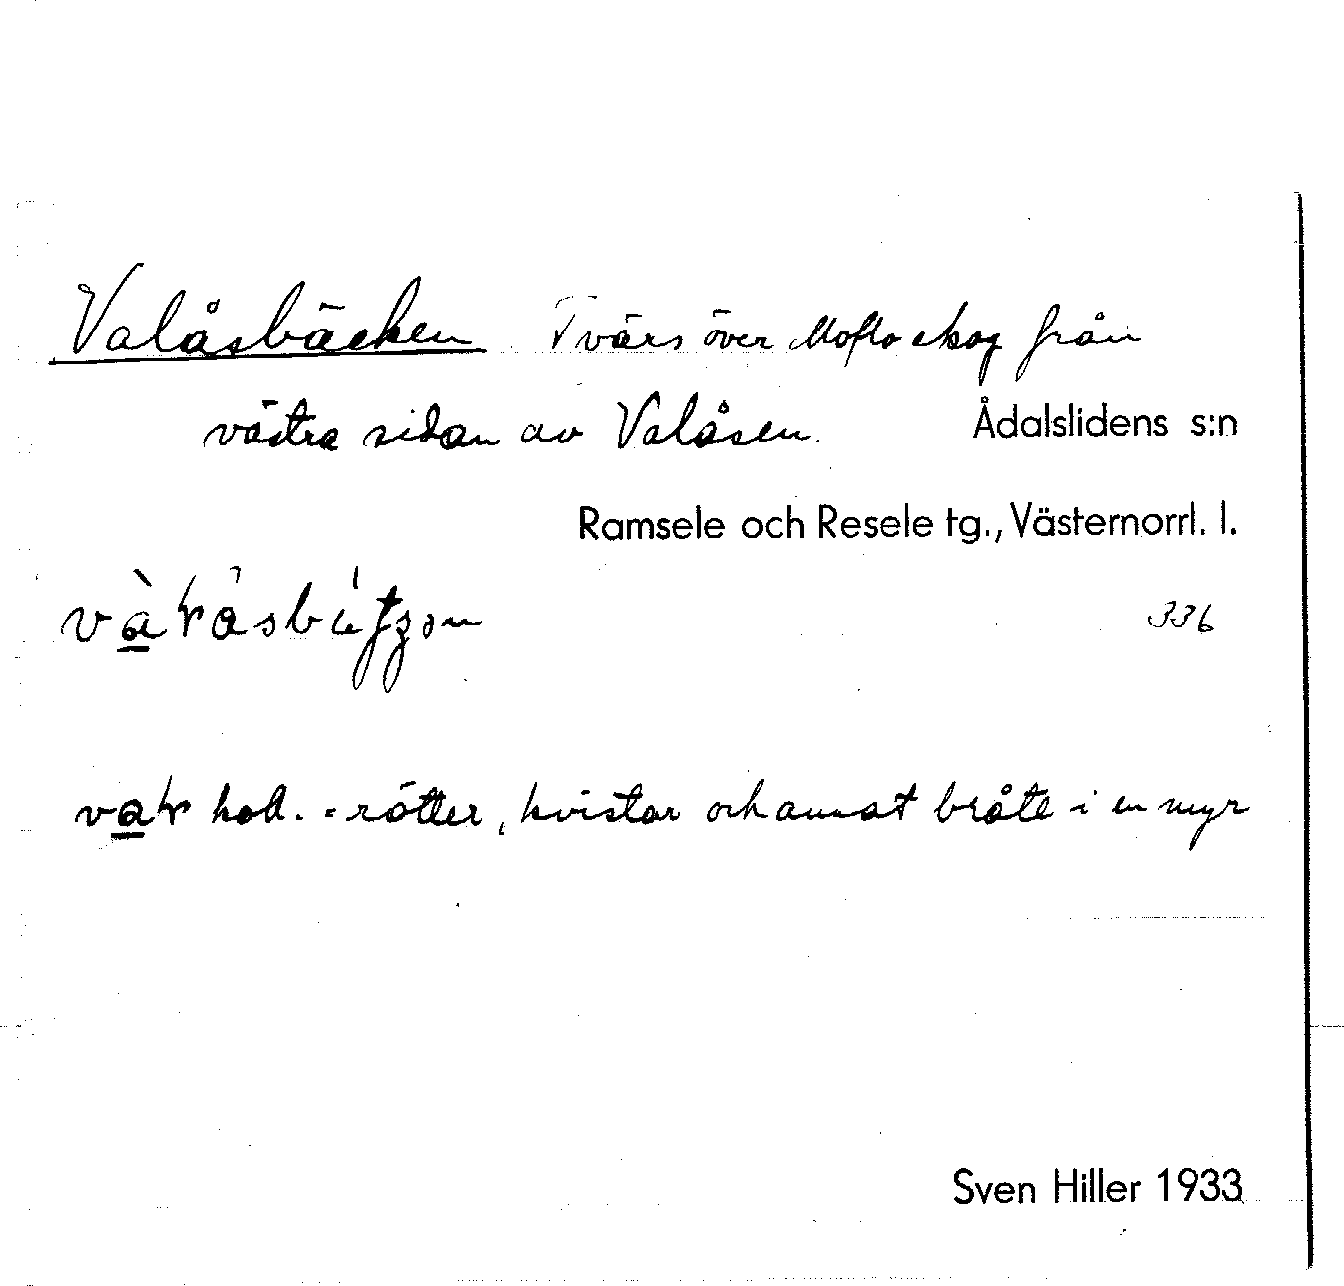 Valåsbäcken Tvärs över Moflo skog från
västra sidan av Valåsen.
Ådalslidens s:n
Ramsele och Resele tg., Västernorrl. l.
336
koll. = rötter, kvistar och annat bråte i en myr
Sven Hiller 1933